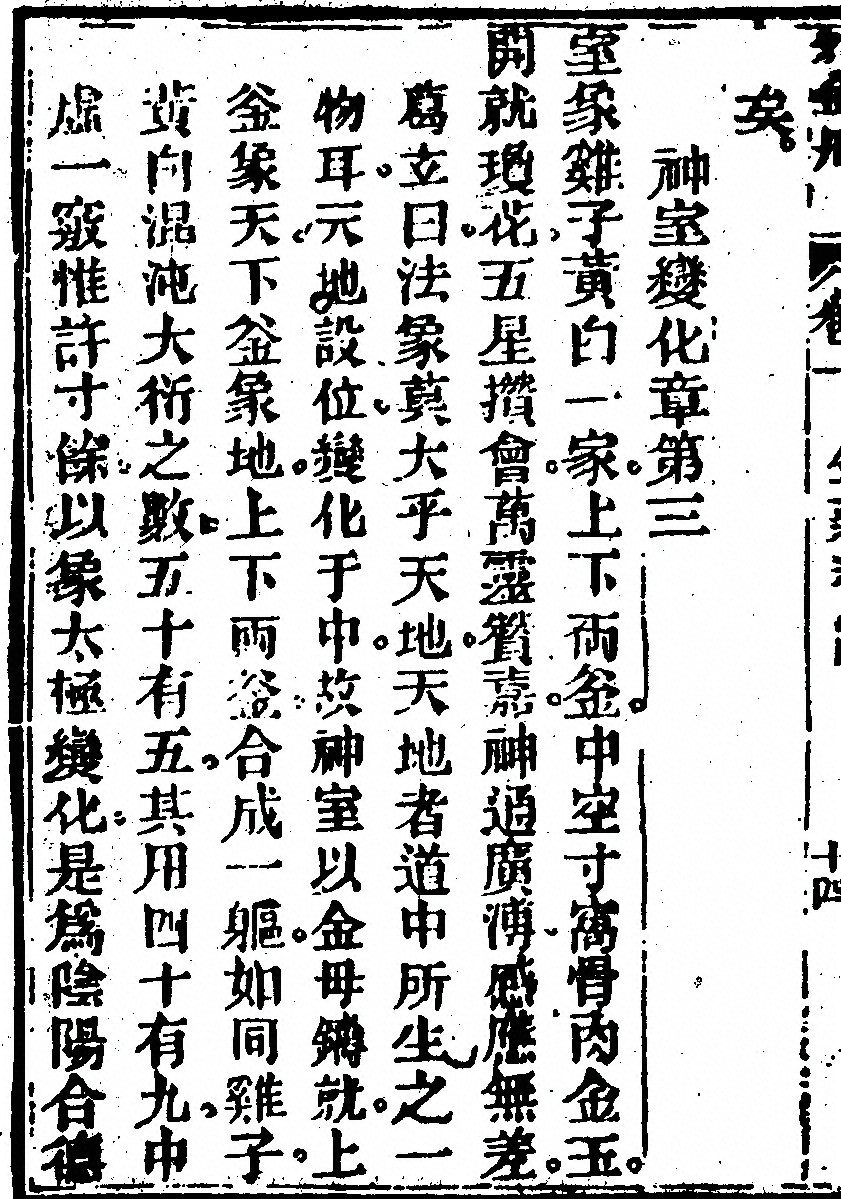 矣
神室變化章第三
室象雞子黃白一家上下兩釜中空寸窩骨肉金玉
開就瓊花五星攢會萬靈贊嘉神通廣溥感應無差
葛立曰法象莫大乎天地天地者道中所生之一
物耳元地設位變化于中故神室以金母鑄就上
釜象天下釜象地上下兩釜合成一軀如同雞子
黃向混沌大衍之數五十有五其用四十有九中
虛一竅惟許寸餘以象太極變化是爲陰陽合德